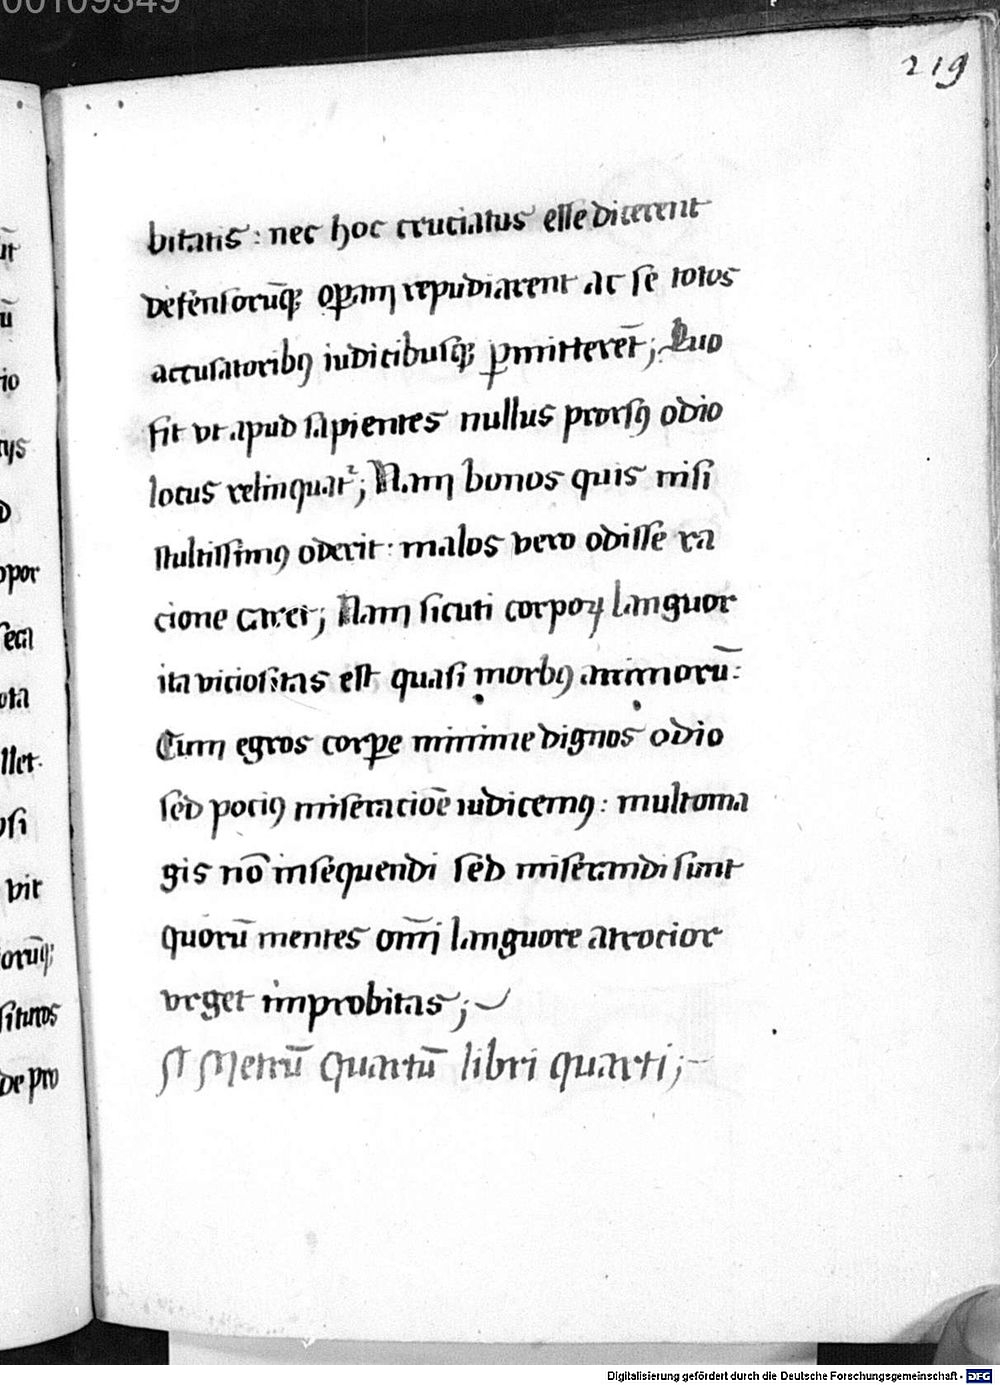 00109349
219
bitatis : nec hoc cruciatus esse dicerent
defensorūq; operam repudiarent ac se totos
accusatoribꝰ iudicibusq; ꝑmitterēt ; Quo
fit vt apud sapientes nullus prorsꝰ odio
locus relinquat᷑ ; Nam bonos quis nisi
stultissimꝰ oderit : malos vero odisse ra
cione caret ; Nam sicuti corpoꝝ languor
ita viciositas est quasi morbꝰ animorū :
Cum egros corꝑe minime dignos odio
sed pociꝰ miseracioē iudicemꝰ : multo ma
gis nō insequendi sed miserandi sunt
quorū mentes om̄i languore atrocior
vrget improbitas ;
Metrū quartū libri quarti ;
ut
ū
io
tys
D
opor
seca
ota
llet .
psi
vit
orūq;
situros
De pro
Digitalisierung gefördert durch die Deutsche Forschungsgemeinschaft - DFG